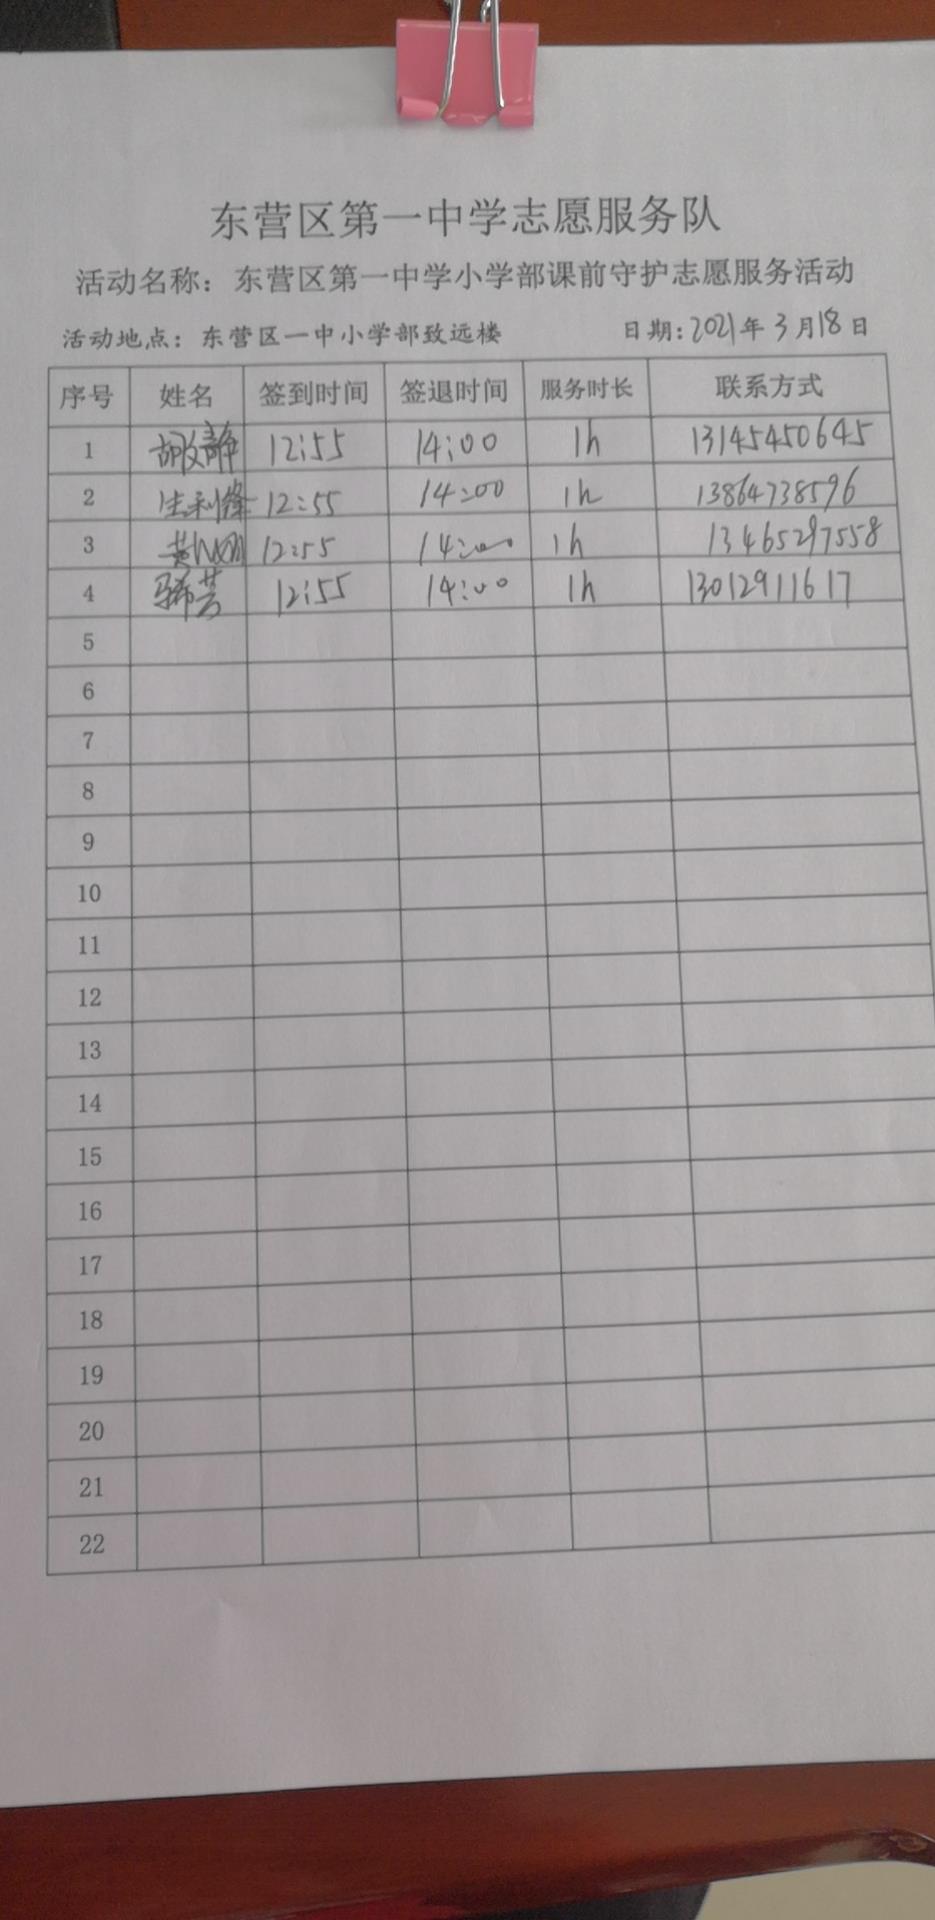 东营区第一中学志愿服务队
活动名称：东营区第一中学小学部课前守护志愿服务活动
活动地点：东营区一中小学部致远楼 日期：2021年3月18日
序号 姓名 签到时间 签退时间 服务时长 联系方式
1 胡文静 12:55 14:00 1h 13145450645
2 生利锋 12:55 14:00 1h 13864738596
3 12:55 14:00 1h 13465297558
4 12:55 14:00 1h 13012911617
5
6
7
8
9
10
11
12
13
14
15
16
17
18
19
20
21
22